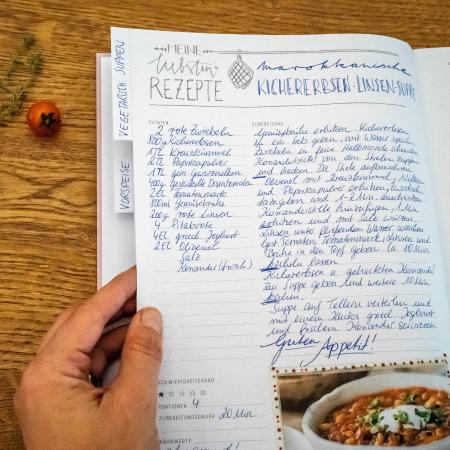 MEINE
liebsten
REZEPTE
marokkanische
KICHERERBSEN-LINSEN-SUPPE
VEGETARISCH SUPPEN
VORSPEISE
ZUTATEN
2 rote Zwiebeln
800g Kichererbsen
1TL Kreuzkümmel
2TL Paprikapulver
1TL gem. Gewürznelken
400g gestückelte Dosentomaten
2EL Tomatenmark
200g rote Linsen
4 Pitabrote
4EL griech. Joghurt
2EL Olivenöl
Salz
Koriander (frisch)
SCHWIERIGKEITSGRAD
PORTIONEN 4
ZUBEREITUNGSDAUER 20 Min.
NÄHRWERTE
ZUBEREITUNG
Gemüsebrühe erhitzen. Kichererbsen
in ein Sieb geben, mit Wasser
Zwiebeln in feine
Korianderblätter von den Stielen zupfen
und hacken. Die Stiele aufbewahren.
Olivenöl mit Kreuzkümmel, Nelken
und Paprikapulver erhitzen, Zwiebeln
dazugeben und 1-2 Min. andünsten
Korianderstiele hinzufügen, Min.
erhitzen und mit Salz würzen.
Linsen unter fließendem Wasser waschen
Tomaten, Tomatenmark, Linsen und
Brühe in den Topf geben ca. 10 Min.
köcheln lassen.
Kichererbsen u. gehackten Koriander
zur Suppe geben und weitere 10 Min.
kochen.
Suppe auf Tellern verteilen und
mit einem Klecks griech. Joghurt
und frischem Koriander servieren.
Guten Appetit!